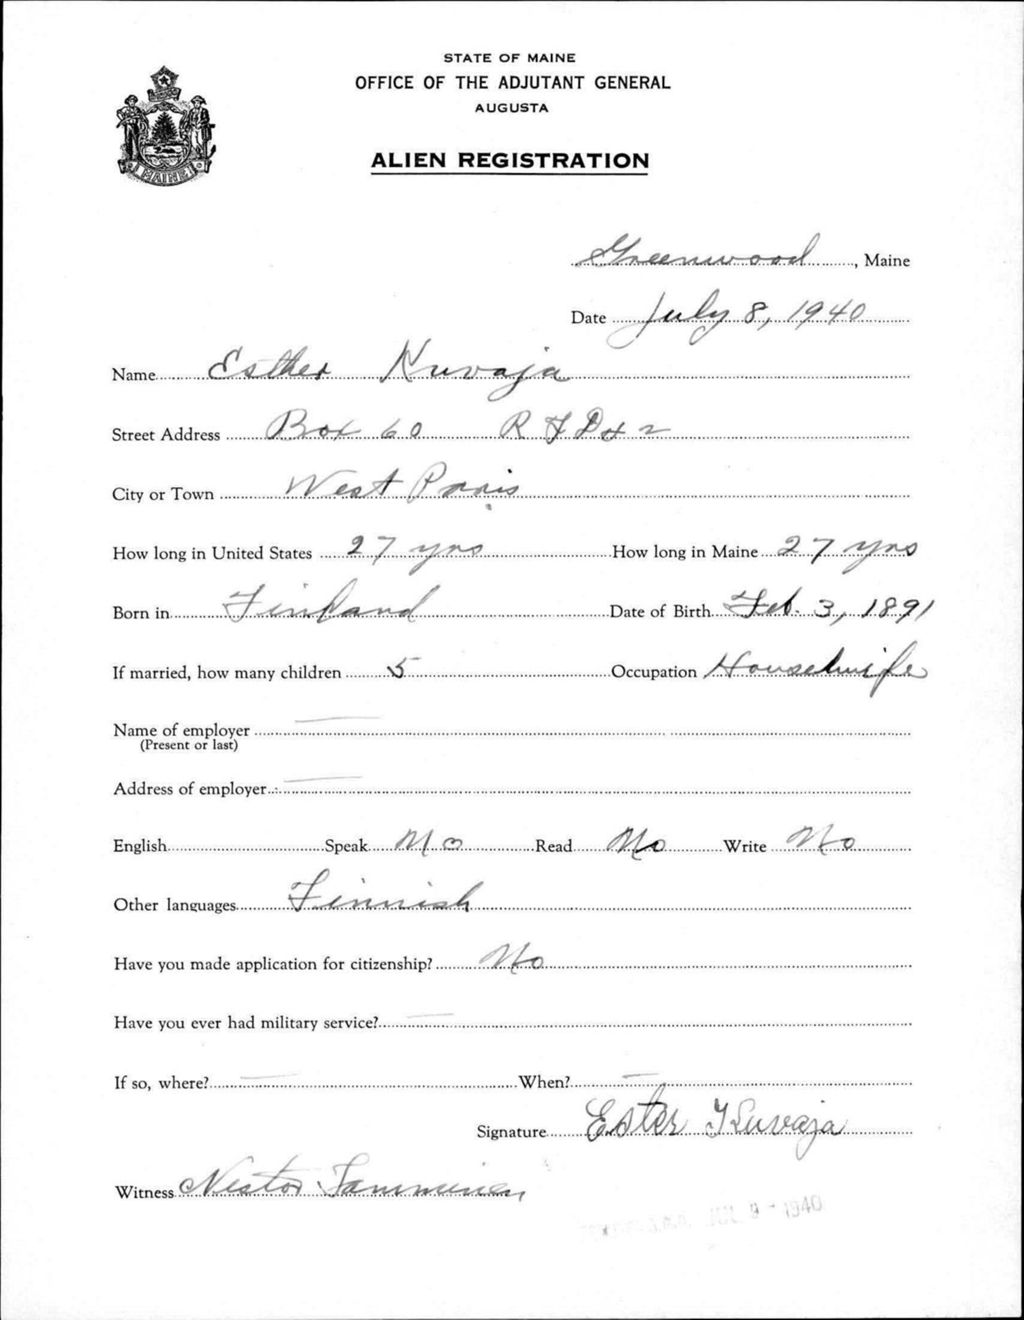 STATE OF MAINE
OFFICE OF THE ADJUTANT GENERAL
AUGUSTA
ALIEN REGISTRATION
MAINE
Greenwood, Maine
Date July 8, 1940
Name Esther Kuvaja
Street Address Box 60 R F D # 2
City or Town West Paris
How long in United States 27 yrs How long in Maine 27 yrs
Born in Finland Date of Birth Feb. 3, 1891
If married, how many children 5 Occupation Housewife
Name of employer —
(Present or last)
Address of employer —
English Speak No Read No Write No
Other languages Finnish
Have you made application for citizenship? No
Have you ever had military service? —
If so, where? — When? —
Signature Ester Kuvaja
Witness Nestor Tamminen
JUL 9 - 1940